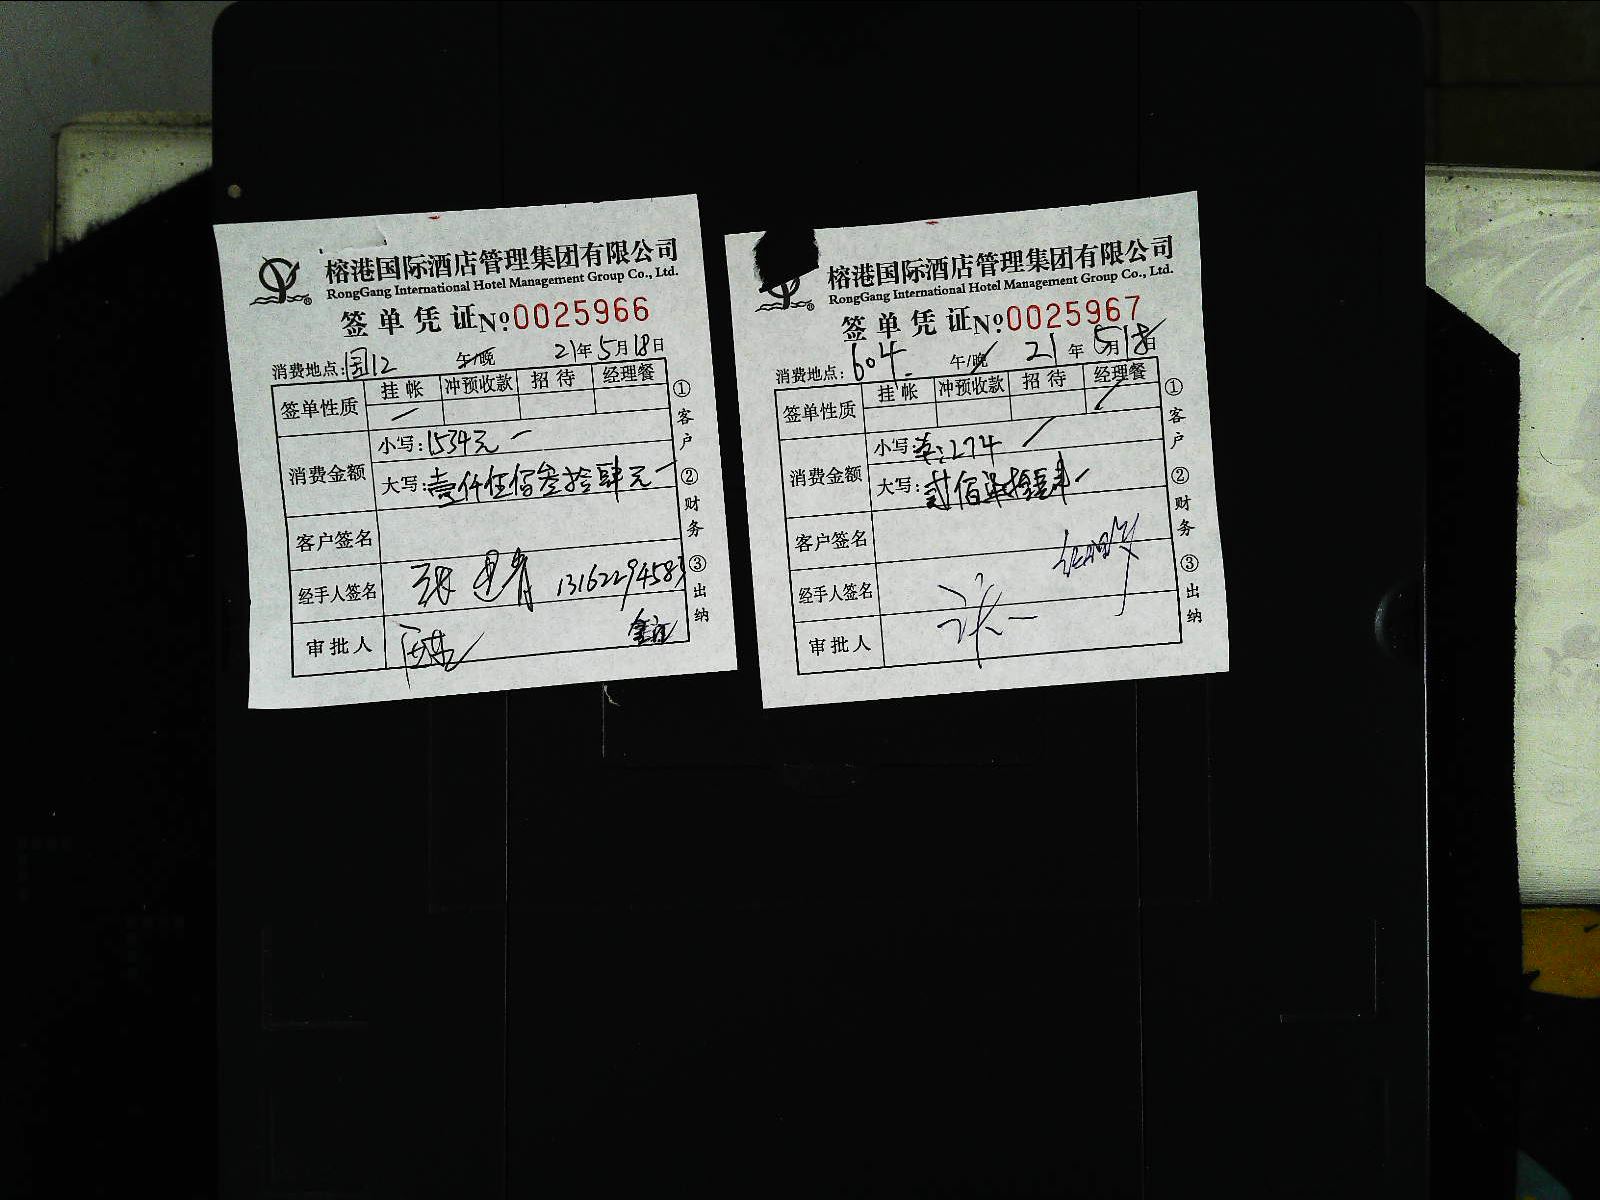 榕港国际酒店管理集团有限公司
RongGang International Hotel Management Group Co., Ltd.
签单凭证 Nº 0025966
消费地点: 国12 午/晚 21年5月18日
签单性质 挂帐 冲预收款 招待 经理餐
消费金额
小写: 1534元
大写: 壹仟伍佰叁拾肆元
客户签名
经手人签名 13162294583
审批人
①客户 ②财务 ③出纳
榕港国际酒店管理集团有限公司
RongGang International Hotel Management Group Co., Ltd.
签单凭证 Nº 0025967
消费地点: 604 午/晚 21年5月18日
签单性质 挂帐 冲预收款 招待 经理餐
消费金额
小写: 274
大写: 贰佰柒拾肆
客户签名
经手人签名
审批人
①客户 ②财务 ③出纳